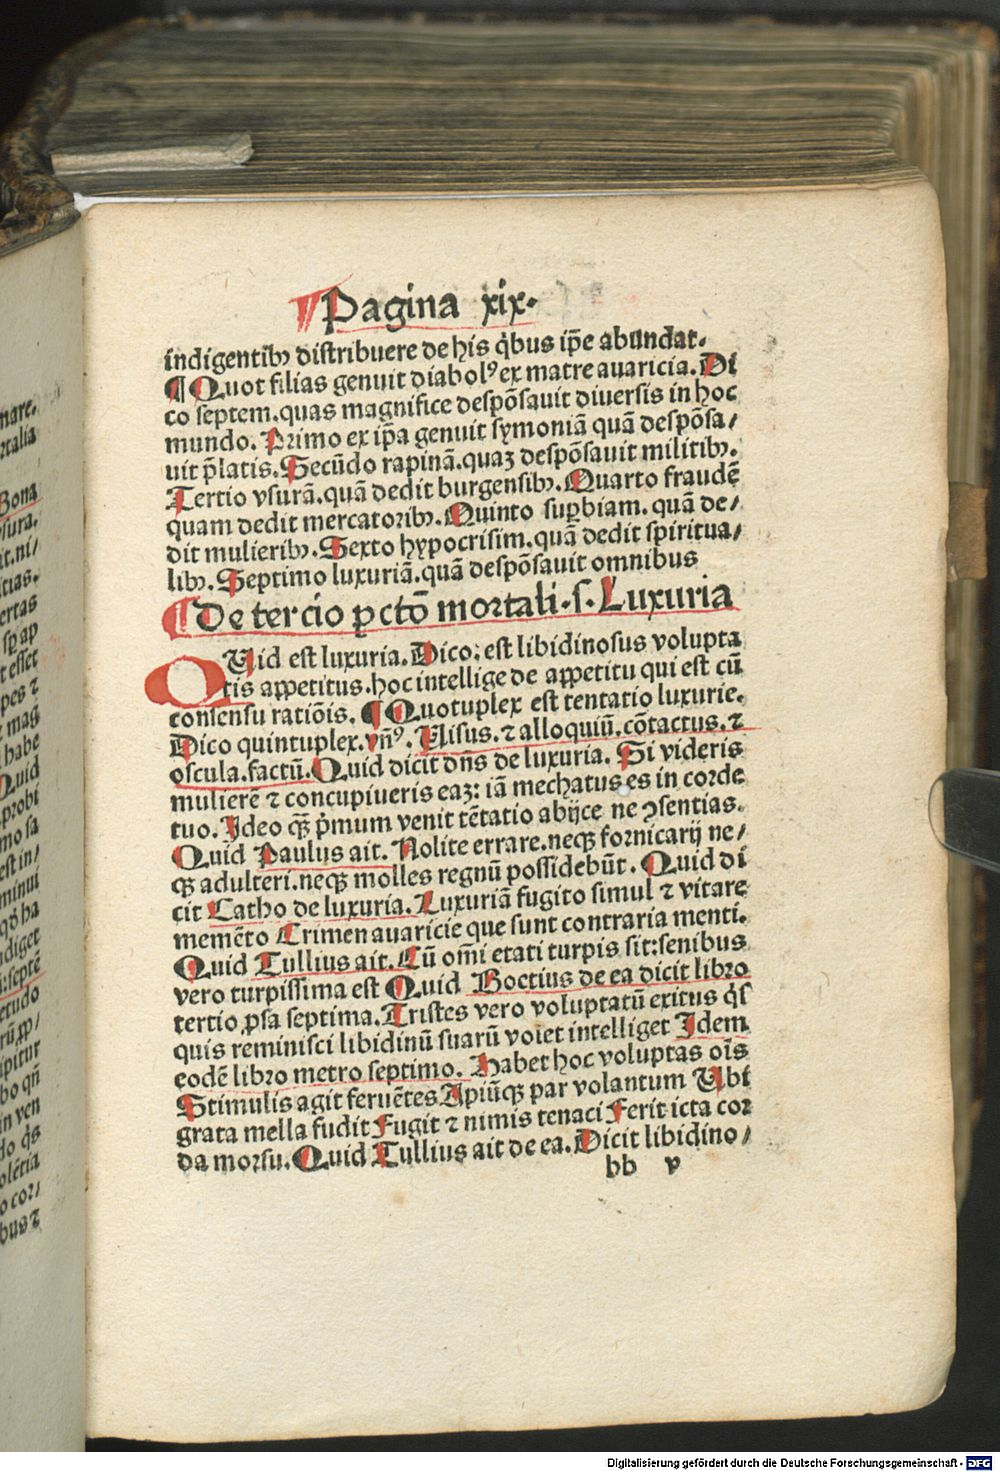 nare.
rtalia
Bona
sura.
it.ni/
itias.
ertas
sp ap
t esset
pes ⁊
mag̃
habe
Quid
probi
mo sa
est in/
minui
qꝺ ha
ndiget
i:septẽ
etudo
rũ ꝓ/
ipitur
bo qñ
in ven
do q̃s
olẽtia
o cor/
bus ⁊
¶ Pagina xix.
indigentibꝫ distribuere de his q̇bus ip̃e abundat.
¶ Quot filias genuit diabolꝰ ex matre auaricia. Di
co septem.quas magnifice despõsauit diuersis in hoc
mundo. Primo ex ip̃a genuit symoniã quã despõsa/
uit p̃latis. Secũdo rapinã.quaꝫ despõsauit militibꝫ.
Tertio vsurã.quã dedit burgensibꝫ. Quarto fraudẽ
quam dedit mercatoribꝫ. Quinto suꝑbiam. quã de/
dit mulieribꝫ. Sexto hypocrisim.quã dedit spiritua/
libꝫ. Septimo luxuriã.quã despõsauit omnibus
¶ De tercio pctõ mortali.s. Luxuria
QUid est luxuria. Dico: est libidinosus volupta
tis appetitus.hoc intellige de appetitu qui est cũ
consensu ratiõis. ¶ Quotuplex est tentatio luxurie.
Dico quintuplex.vñꝰ. Elisus. ⁊ alloquiũ. cõtactus. ⁊
oscula.factũ. Quid dicit dñs de luxuria. Si videris
mulierẽ ⁊ concupiueris eaꝫ: iã mechatus es in corde
tuo. Ideo qꝫ̃ p̃mum venit tẽtatio abijce ne ꝯsentias.
Quid Paulus ait. Nolite errare.neqꝫ fornicarij ne/
qꝫ adulteri.neqꝫ molles regnũ possidebũt. Quid di
cit Catho de luxuria. Luxuriã fugito simul ⁊ vitare
memẽto Crimen auaricie que sunt contraria menti.
Quid Tullius ait. Cũ om̃i etati turpis sit:senibus
vero turpissima est Quid Boetius de ea dicit libro
tertio ꝓsa septima. Tristes vero voluptatũ exitus q̃s
quis reminisci libidinũ suarũ volet intelliget Idem
eodẽ libro metro septimo. Habet hoc voluptas oĩs
Stimulis agit feruẽtes Apiũqꝫ par volantum Ubi
grata mella fudit Fugit ⁊ nimis tenaci Ferit icta cor
da morsu. Quid Tullius ait de ea. Dicit libidino/
bb v
Digitalisierung gefördert durch die Deutsche Forschungsgemeinschaft - DFG